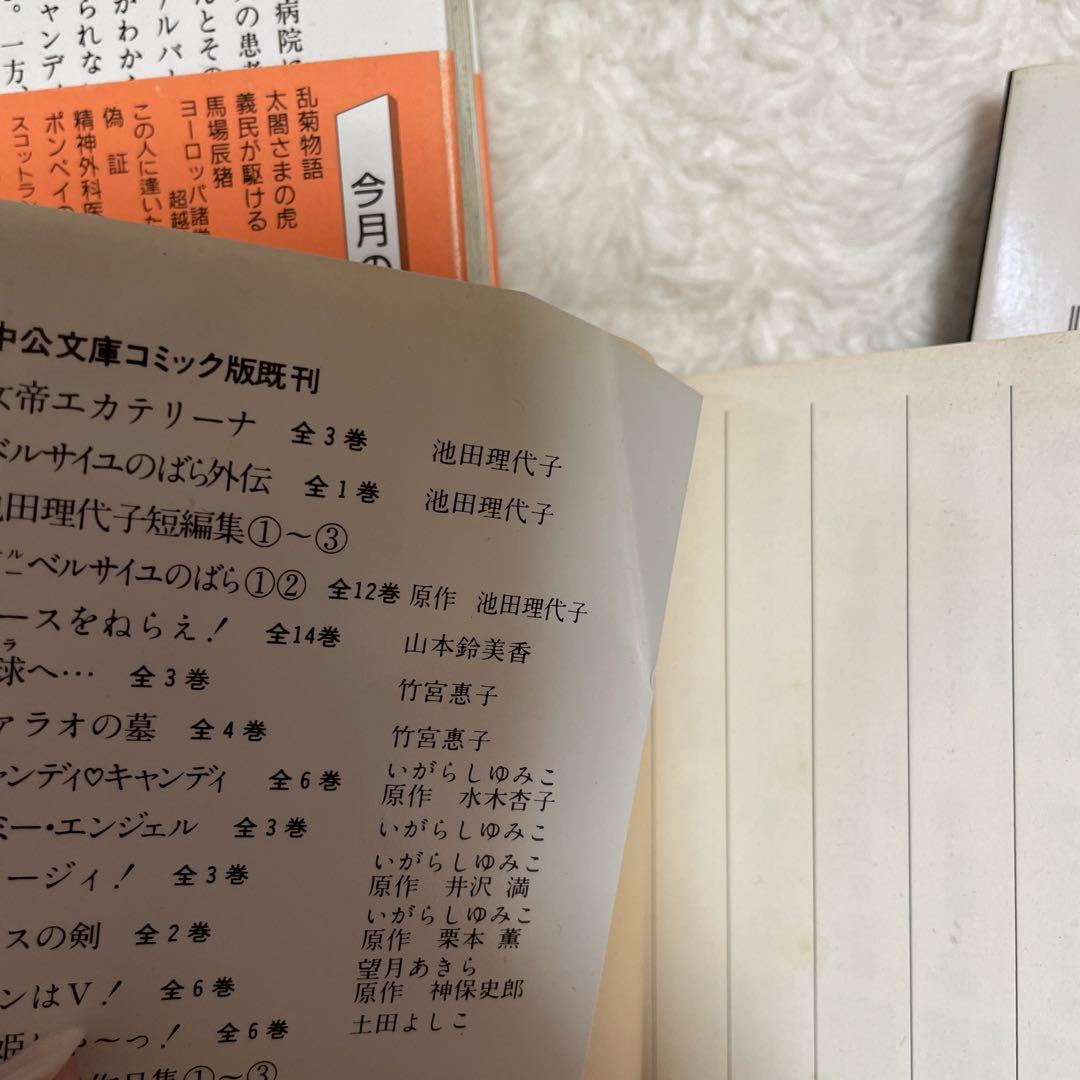 病院に
の患者
んとその
アルバ
がわか
られな
ャンデ
。一方、
今月の
乱菊物語
太閤さまの虎
義民が駆ける
馬場辰猪
ヨーロッパ諸学
超越
この人に逢いた
偽証
精神外科医
ポンペイの
スコットラン
中公文庫コミック版既刊
女帝エカテリーナ 全3巻 池田理代子
ベルサイユのばら外伝 全1巻 池田理代子
池田理代子短編集①〜③
ベルサイユのばら①② 全12巻 原作 池田理代子
ースをねらえ! 全14巻 山本鈴美香
球へ… 全3巻 竹宮惠子
ァラオの墓 全4巻 竹宮惠子
ャンディ♡キャンディ 全6巻 いがらしゆみこ
原作 水木杏子
ミー・エンジェル 全3巻 いがらしゆみこ
ージィ! 全3巻 いがらしゆみこ
原作 井沢満
スの剣 全2巻 いがらしゆみこ
原作 栗本薫
ンはV! 全6巻 望月あきら
原作 神保史郎
姫 〜っ! 全6巻 土田よしこ
集①〜③